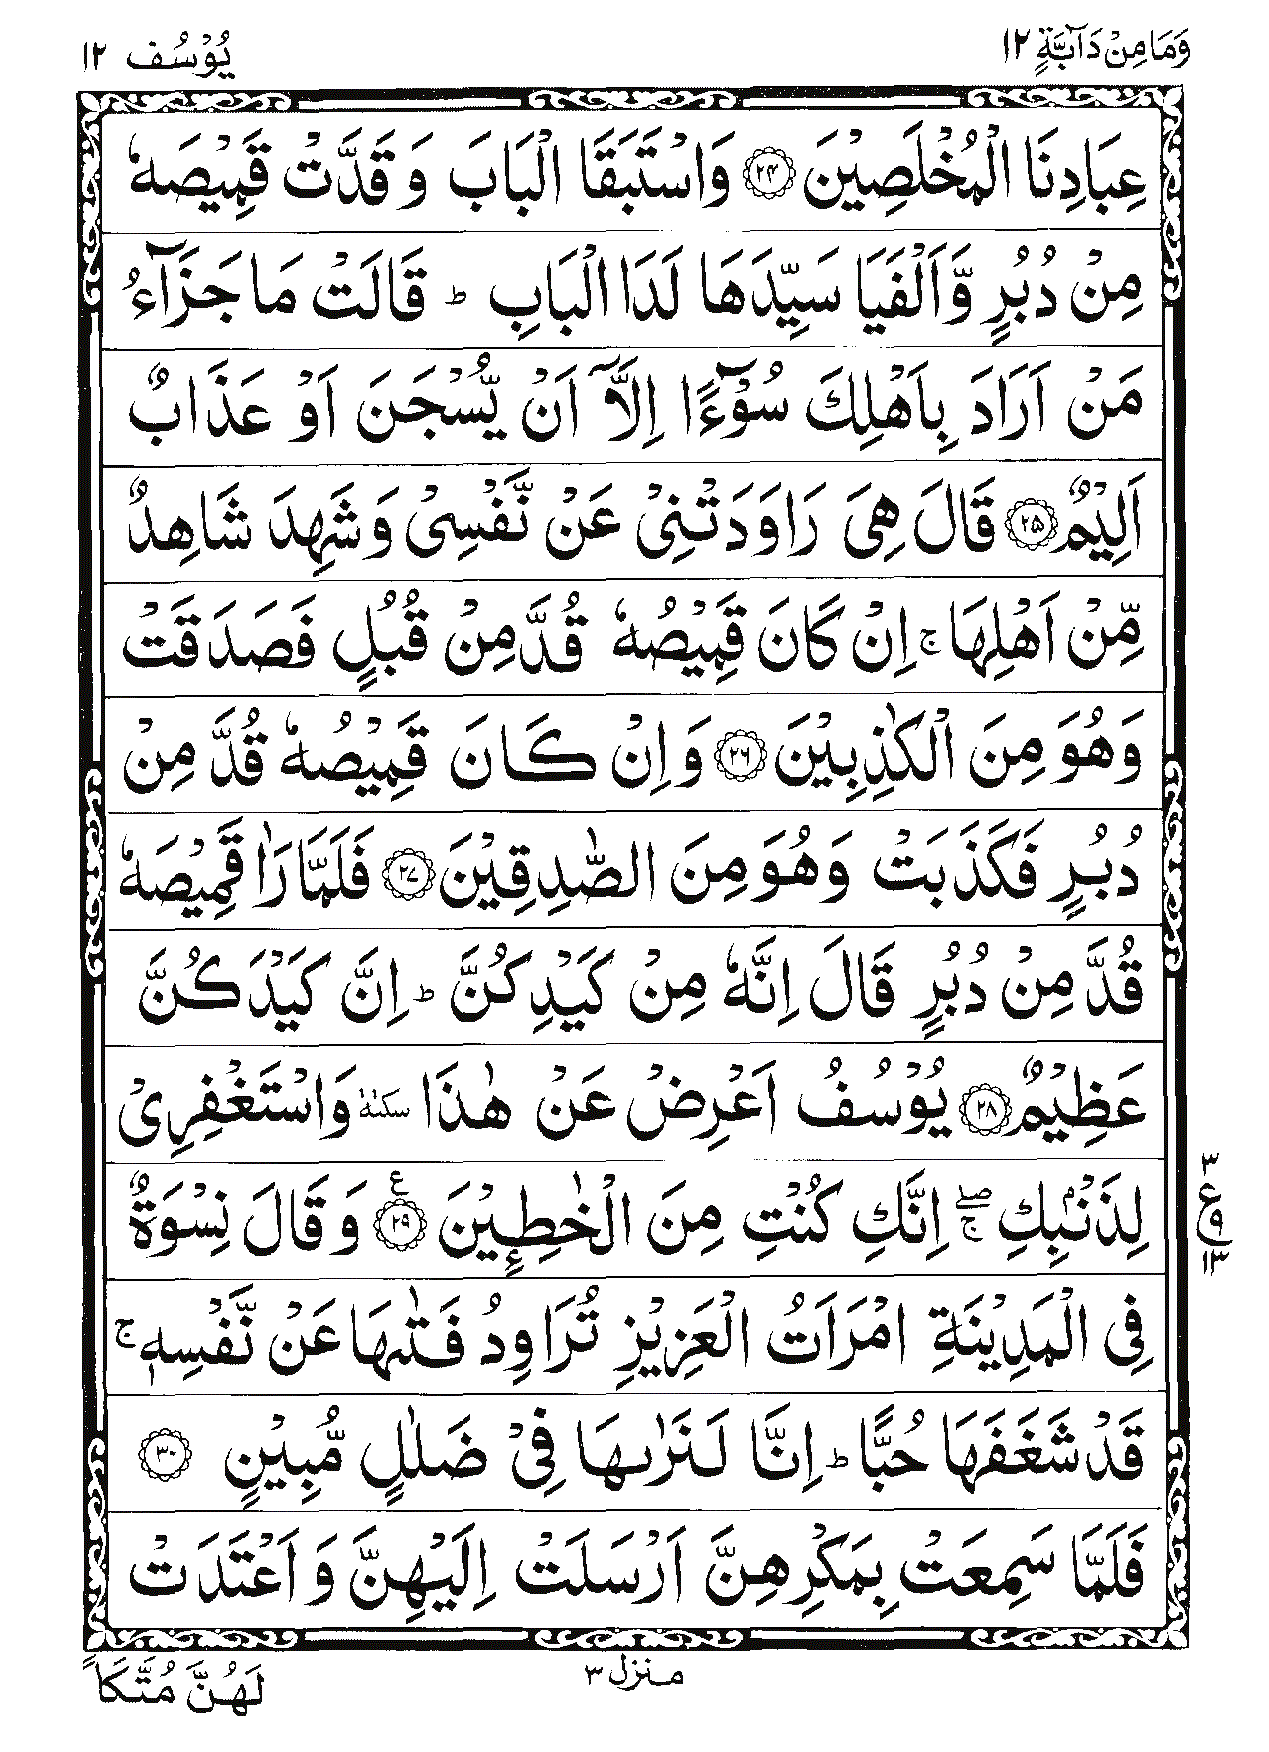 وَمَا مِنْ دَآبَّةٍ ١٢
يُوْسُف ١٢
عِبَادِنَا الْمُخْلَصِيْنَ ﴿۲۴﴾ وَاسْتَبَقَا الْبَابَ وَ قَدَّتْ قَمِيْصَهٗ
مِنْ دُبُرٍ وَّ اَلْفَيَا سَيِّدَهَا لَدَا الْبَابِ ؕ قَالَتْ مَا جَزَآءُ
مَنْ اَرَادَ بِاَهْلِكَ سُوْٓءًا اِلَّاۤ اَنْ يُّسْجَنَ اَوْ عَذَابٌ
اَلِيْمٌ ﴿۲۵﴾ قَالَ هِیَ رَاوَدَتْنِیْ عَنْ نَّفْسِیْ وَ شَهِدَ شَاهِدٌ
مِّنْ اَهْلِهَا ۚ اِنْ كَانَ قَمِيْصُهٗ قُدَّ مِنْ قُبُلٍ فَصَدَقَتْ
وَهُوَ مِنَ الْكٰذِبِيْنَ ﴿۲۶﴾ وَ اِنْ كَانَ قَمِيْصُهٗ قُدَّ مِنْ
دُبُرٍ فَكَذَبَتْ وَهُوَ مِنَ الصّٰدِقِيْنَ ﴿۲۷﴾ فَلَمَّا رَاٰ قَمِيْصَهٗ
قُدَّ مِنْ دُبُرٍ قَالَ اِنَّهٗ مِنْ كَيْدِكُنَّ ؕ اِنَّ كَيْدَكُنَّ
عَظِيْمٌ ﴿۲۸﴾ يُوْسُفُ اَعْرِضْ عَنْ هٰذَا سكتة وَاسْتَغْفِرِیْ
لِذَنْۢبِكِ ۖۚ اِنَّكِ كُنْتِ مِنَ الْخٰطِـِٕيْنَ ﴿۲۹﴾ ع وَ قَالَ نِسْوَةٌ
٣ ع ٩ ١٣
فِی الْمَدِيْنَةِ امْرَاَتُ الْعَزِيْزِ تُرَاوِدُ فَتٰىهَا عَنْ نَّفْسِهٖ ۚ
قَدْ شَغَفَهَا حُبًّا ؕ اِنَّا لَنَرٰىهَا فِیْ ضَلٰلٍ مُّبِيْنٍ ﴿۳۰﴾
فَلَمَّا سَمِعَتْ بِمَكْرِهِنَّ اَرْسَلَتْ اِلَيْهِنَّ وَ اَعْتَدَتْ
منزل ٣
لَهُنَّ مُتَّكَاً